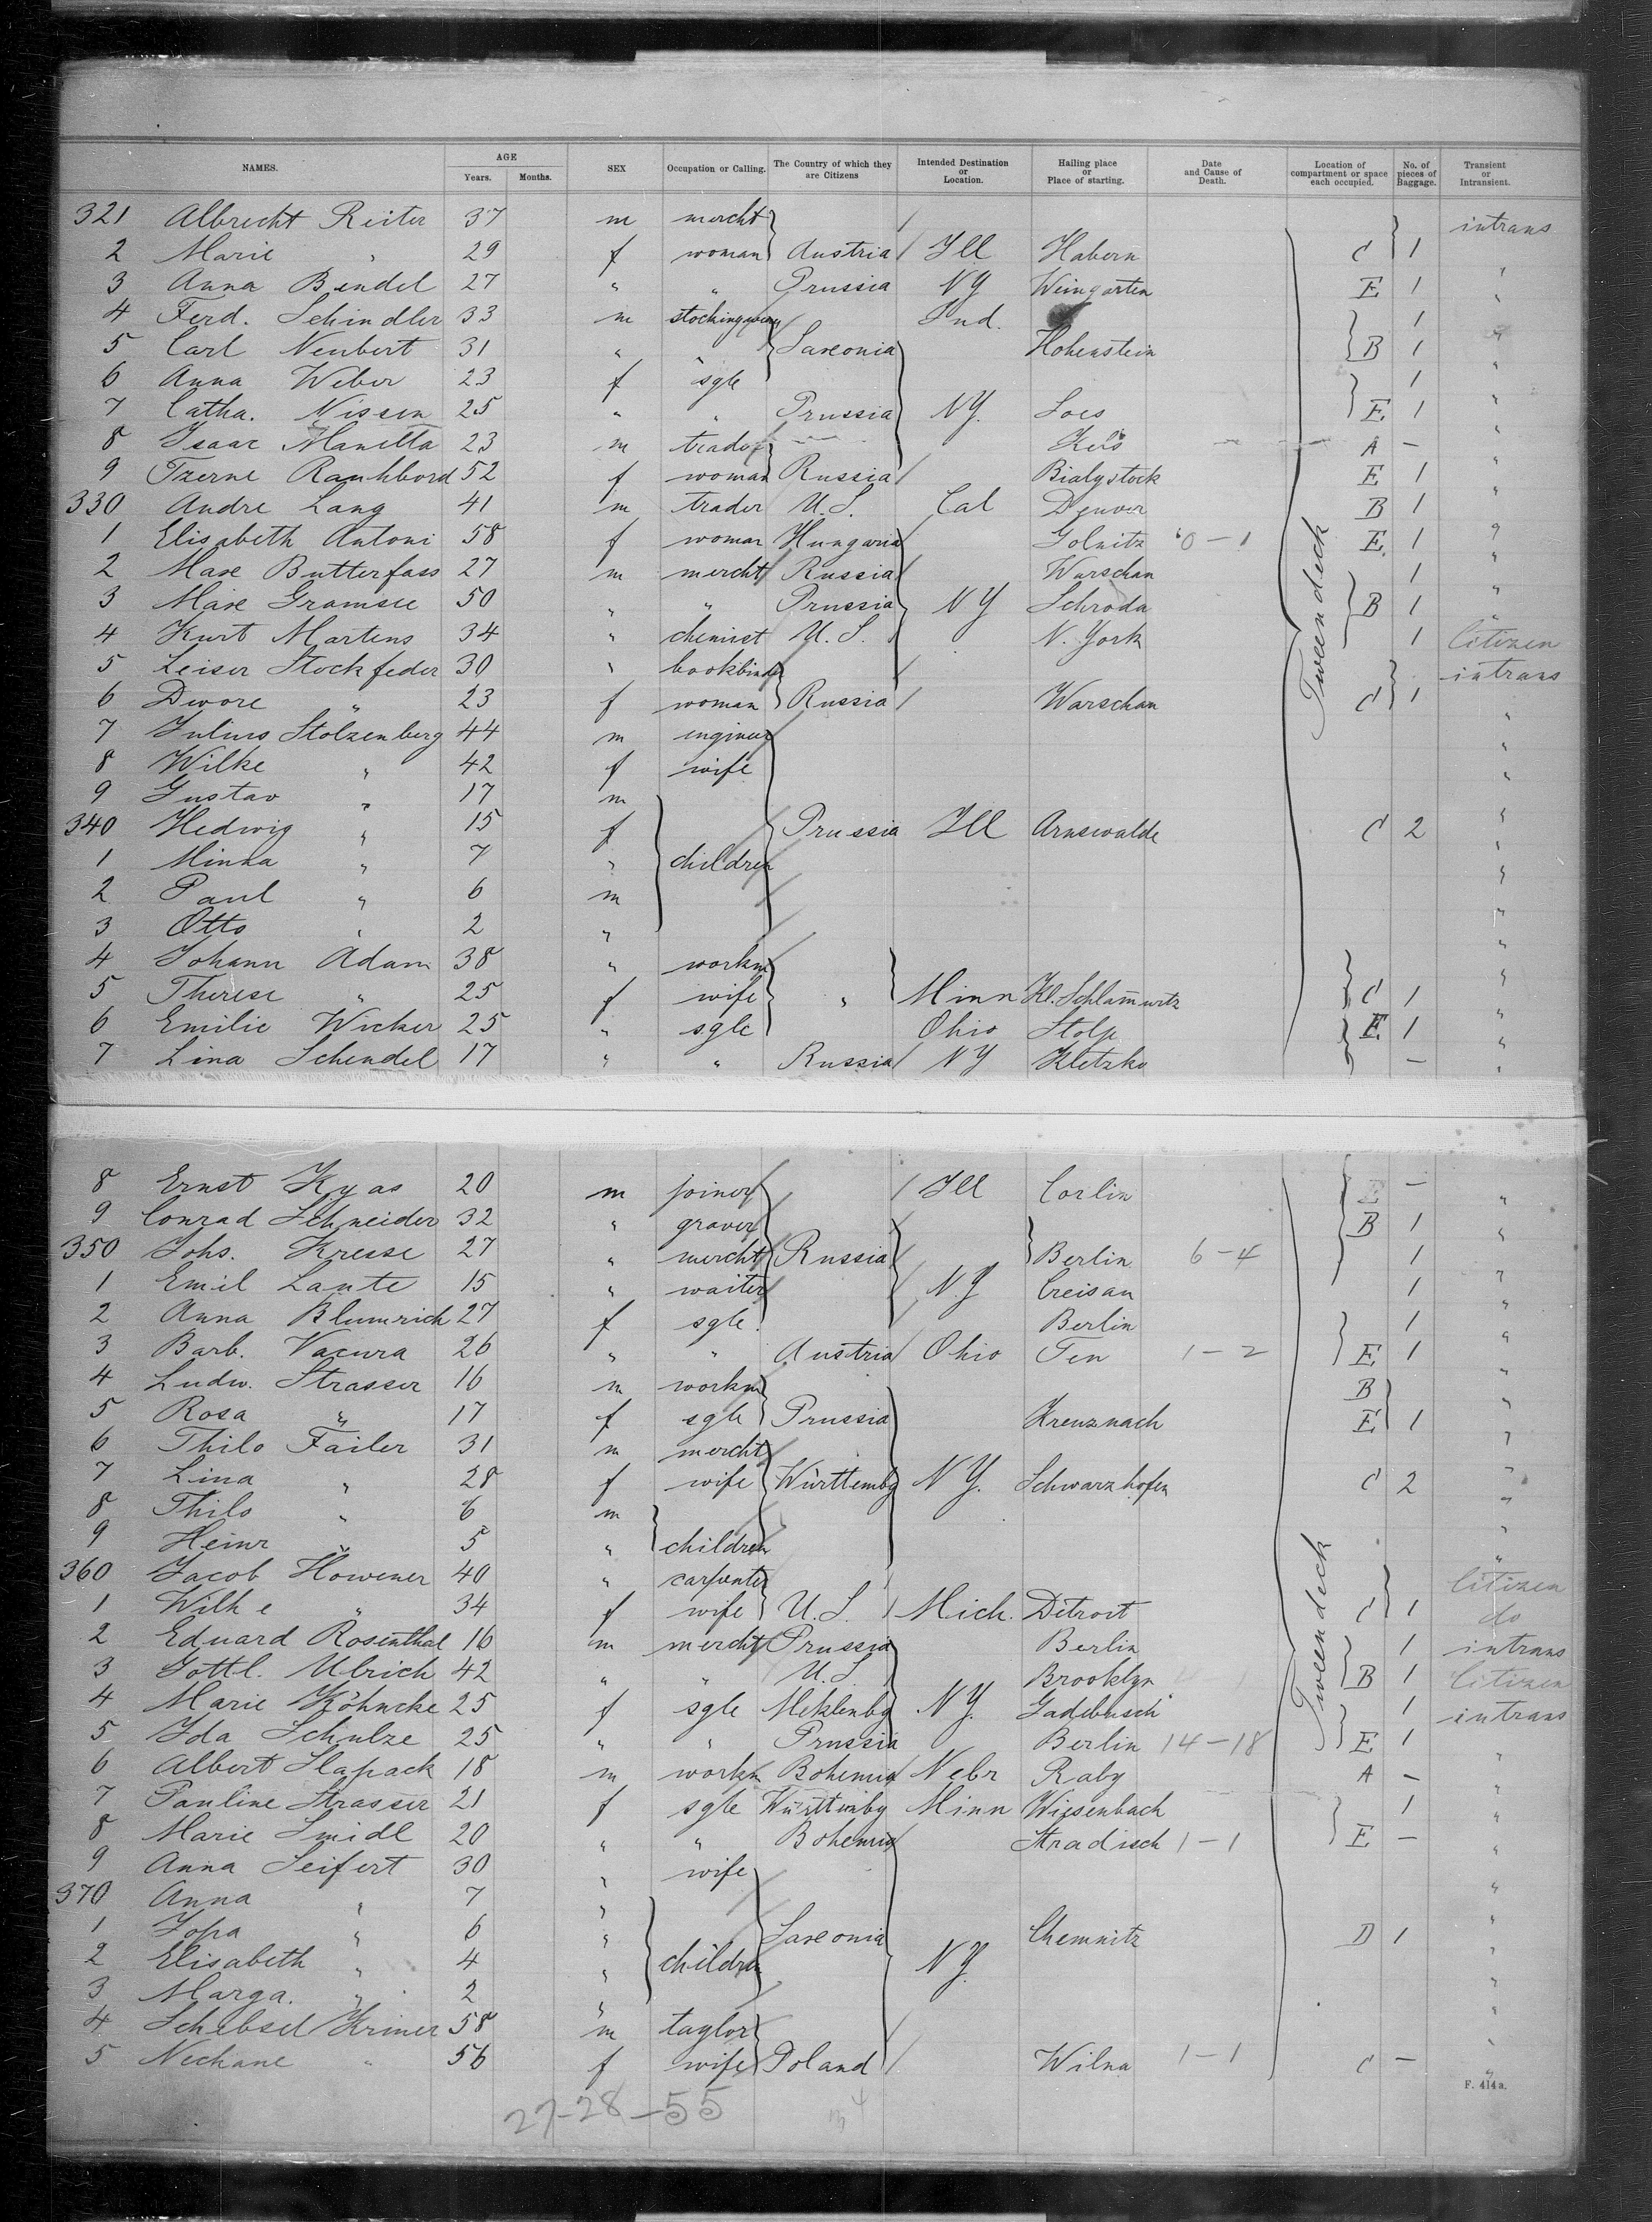 NAMES. AGE Years. Months. SEX Occupation or Calling. The Country of which they are Citizens Intended Destination or Location. Hailing place or Place of starting. Date and Cause of Death. Location of compartment or space each occupied. No. of pieces of Baggage. Transient or Intransient.
321 Albrecht Reiter 37 m mercht intrans
2 Marie " 29 f woman Austria Ill Habern C 1 "
3 Anna Bendel 27 " " Prussia NY Weingarten E 1 "
4 Ferd. Schindler 33 m Ind. 1 "
5 Carl Neubert 31 " " Saxonia Hohenstein B 1 "
6 Anna Weber 23 f sgle 1 "
7 Catha. Nissen 25 " " Prussia NY. Loes E 1 "
8 Isaac Manetta 23 m trader A – "
9 52 f woman Russia Bialystock E 1 "
330 Andre Lang 41 m trader U.S. Cal Denver B 1 "
1 Elisabeth Antoni 58 f woman Hungaria Golnitz 0–1 E. 1 "
2 Max Butterfass 27 m mercht Russia Warschau 1 "
3 Max Gramsee 50 " " Prussia NY Schroda B 1 "
4 Kurt Martens 34 " chemist U.S. N. York 1 Citizen
5 Leiser Stockfeder 30 " bookbinder intrans
6 Dwore " 23 f woman Russia Warschau C 1 "
7 Julius Stolzenberg 44 m engineer "
8 Wilke " 42 f wife "
9 Gustav " 17 m "
340 Hedwig " 15 f Prussia Ill Arnswalde C 2 "
1 Minna " 7 " children "
2 Paul " 6 m "
3 Otto " 2 " "
4 Johann Adam 38 " workm "
5 Therese " 25 f wife " Minn C 1 "
6 Emilie Wicker 25 " sgle Ohio Stolp E 1 "
7 Lina Schendel 17 " " Russia NY Kletzko – "
Tweendeck
8 Ernst Kyas 20 m joiner Ill Corlin E – "
9 Conrad Schneider 32 " graver B 1 "
350 Johs. Kresse 27 " mercht Russia Berlin 6–4 1 "
1 Emil Laute 15 " waiter NY Creisau 1 "
2 Anna Blumrich 27 f sgle. Berlin 1 "
3 Barb. Vacura 26 " " Austria Ohio Ten 1–2 E 1 "
4 Ludw. Strasser 16 m workm B "
5 Rosa " 17 f sgle Prussia Kreuznach E 1 "
6 Thilo Failer 31 m mercht "
7 Lina " 28 f wife Württembg NY. Schwarzhofen C 2 "
8 Thilo " 6 m "
9 Heinr " 5 " children "
360 Jacob Howener 40 " carpenter Citizen
1 Wilh e " 34 f wife U.S. Mich. Detroit C 1 do
2 Eduard Rosenthal 16 m mercht Prussia Berlin 1 intrans
3 Gottl. Ulrich 42 " " U.S. Brooklyn B 1 Citizen
4 Marie Köhncke 25 f sgle Meklenbg NY. Gadebusch 1 intrans
5 Ida Schulze 25 " " Prussia Berlin 14–18 E 1 "
6 Albert Slapack 18 m workm Bohemia Nebr Raby A – "
7 Pauline Strasser 21 f sgle Württembg Minn Wiesenbach 1 "
8 Marie Smidl 20 " " Bohemia Stradisch 1–1 E – "
9 Anna Seifert 30 " wife "
370 Anna " 7 " "
1 " 6 " Saxonia Chemnitz D 1 "
2 Elisabeth " 4 " children NY. "
3 Marga. " 2 " "
4 Schebsel Kriner 58 m taylor "
5 Nechane " 56 f wife Poland Wilna 1–1 C – "
Tweendeck
F. 414a.
27–28–55